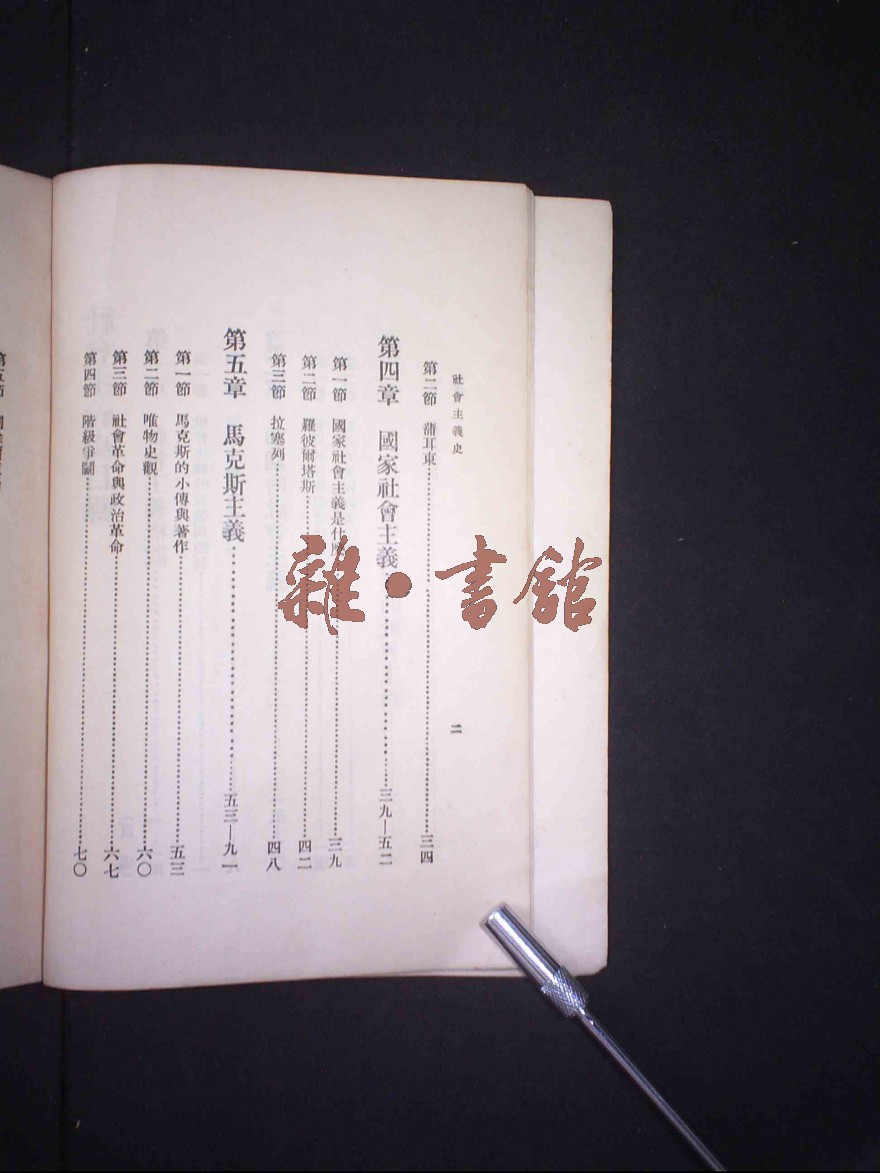 社會主義史
二
第二節 蒲耳東 三四
第四章 國家社會主義 三九—五二
第一節 國家社會主義是什麼 三九
第二節 羅彼爾塔斯 四二
第三節 拉塞列 四八
第五章 馬克斯主義 五三—九一
第一節 馬克斯的小傳與著作 五三
第二節 唯物史觀 六〇
第三節 社會革命與政治革命 六七
第四節 階級爭鬭 七〇
第五節
雜•書館